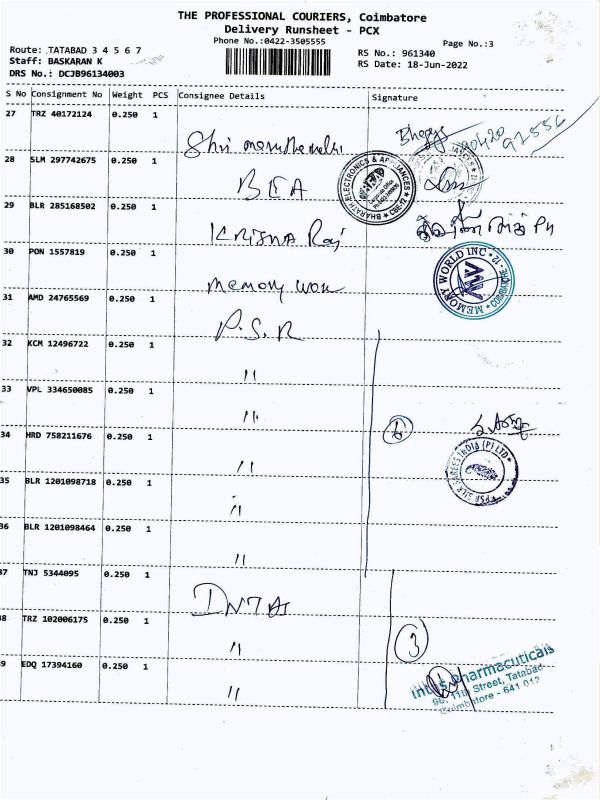 THE PROFESSIONAL COURIERS, Coimbatore
Delivery Runsheet - PCX
Phone No.:0422-3505555
Page No.:3
Route: TATABAD 3 4 5 6 7
Staff: BASKARAN K
DRS No.: DCJB96134003
RS No.: 961340
RS Date: 18-Jun-2022
S No Consignment No Weight PCS Consignee Details Signature
27 TRZ 40172124 0.250 1
Shri
28 SLM 297742675 0.250 1 BEA
BHARATH ELECTRONICS & APPLIANCES * CBE-12 *
29 BLR 285168502 0.250 1 KRISHNA Raj
30 PON 1557819 0.250 1 Memory
MEMORY WORLD INC
MW
31 AMD 24765569 0.250 1 P.S.R
32 KCM 12496722 0.250 1 "
33 VPL 334650085 0.250 1 "
34 HRD 758211676 0.250 1 "
6
PSR SILK SAREES INDIA (P) LTD
35 BLR 1201098718 0.250 1 "
36 BLR 1201098464 0.250 1 "
37 TNJ 5344095 0.250 1
38 TRZ 102006175 0.250 1 "
3
39 EDQ 17394160 0.250 1 "
Pharmaceuticals
96, 11th Street, Tatabad
Coimbatore - 641 012